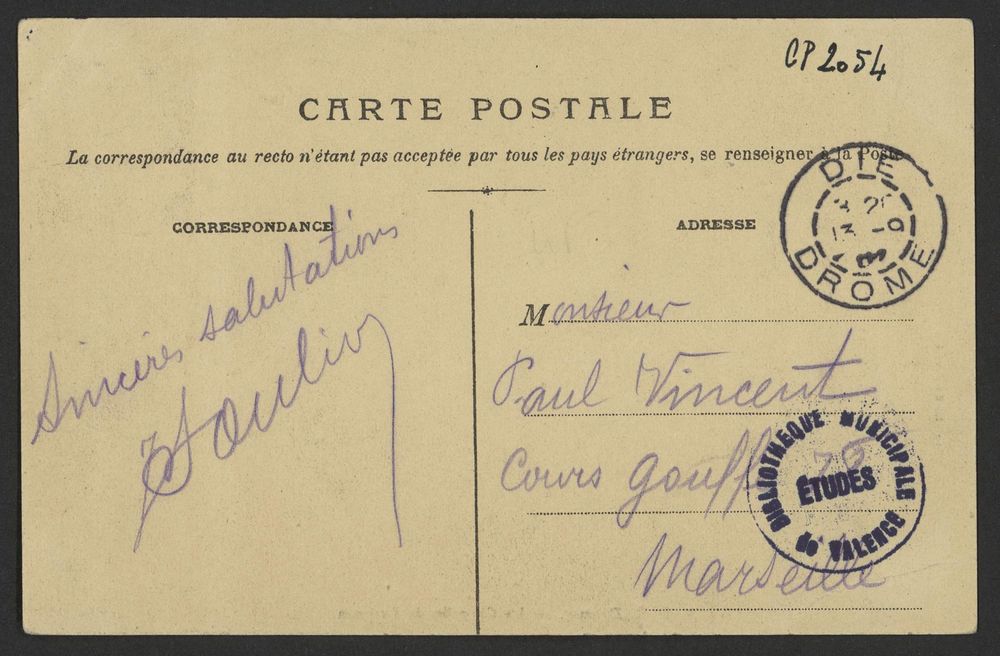 CP 2054
CARTE POSTALE
La correspondance au recto n'étant pas acceptée par tous les pays étrangers, se renseigner à la Poste
CORRESPONDANCE
Sincères salutations
ADRESSE
DIE
DROME
Monsieur
Paul Vincent
Cours Gouffé
Marseille
BIBLIOTHEQUE MUNICIPALE
ÉTUDES
de VALENCE